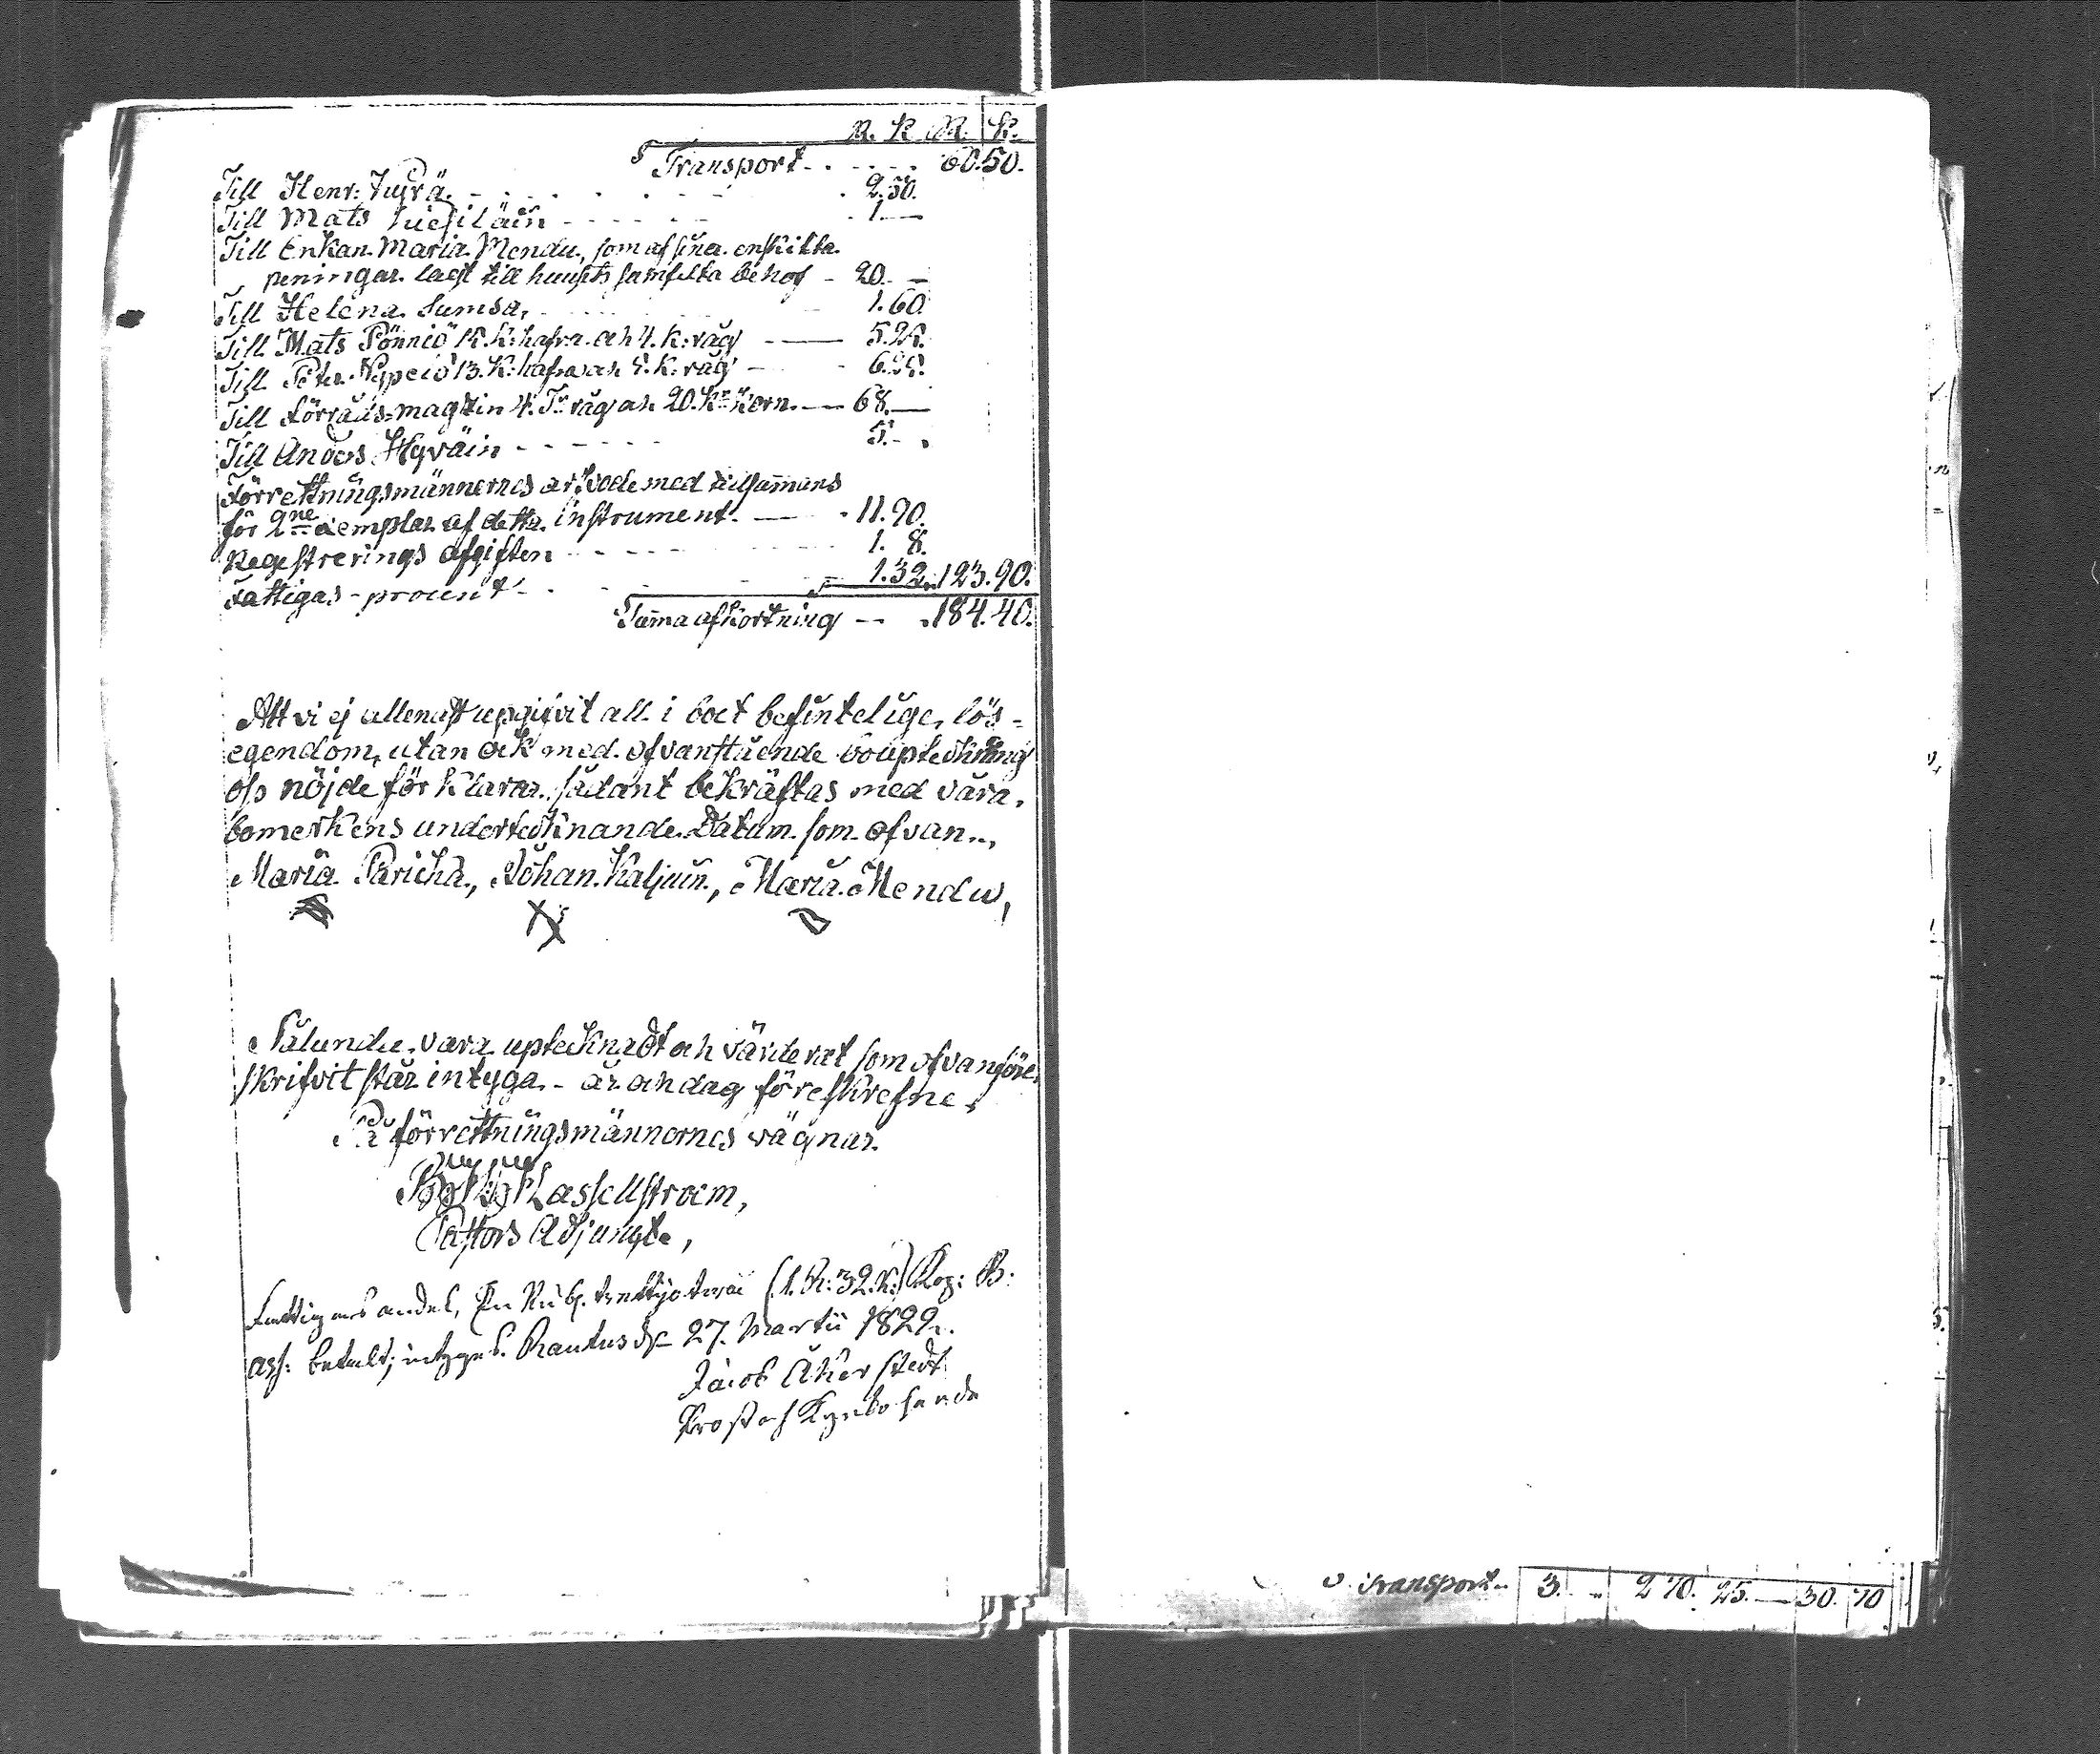 R. K. R. K.
Transport - - - - - 60.50.
Till Henr: Jujrä - - - - - 2.50.
Till Mats - - - - - 1.—
Till Enkan Maria Mendu, som af sina enskilta
peningar lagt till husets samfelta behof - 20. —
Till Helena Sumsa, - - - 1.60.
Till Mats Pönniö K: hafra och 4. K: råg —— 5.
Till Peter 13. K: hafra och K: råg — - 6.
Till Förråds-magazin 4. Tr råg och 20. Kr korn. — 68.—
Till Anders Hyväin - - - - - - 5. - .
Förrettningsmännernes arfvode med tillsammans
för 2ne exemplar af detta instrument. — - 11.90.
Regestrerings afgiften - - - - 1. 8.
Fattigas-procent - - - 1.32. 123.90.
Summa afkortning -- . 184.40.
Att vi ej allenast uppgifvit all i boet befintelige lös-
egendom, utan ock med ofvanstående bouptekning
oss nöjde förklarar, sådant bekräftas med våra
bomerkens undertecknande. Datum som ofvan.,
Maria Paricka, Johan Kaljuin, Maria Mendu,
Sålunda vara uptecknadt och värderat som ofvanföre
skrifvit står intyga - år och dag föreskrefne.
På förrettningsmännernes vägnar.
assellstroem,
Pastors Adjunct.,
Fattigas andel, En Rub. trettijotwå (1. R: 32. K:) Kop: B:
ass: betalt; intygas. Rautus d. 27. Martii 1822.
Jacob Åkerstedt
Prost och Kyrkoherde
Transport.. 3. .. 270. 25. — 30. 70